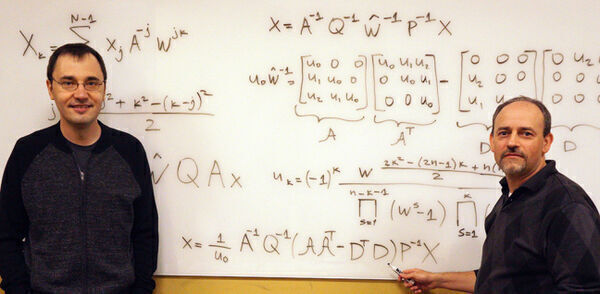 X_k = \sum^{N-1} x_j A^{-j} W^{jk}
X = A^{-1} Q^{-1} \hat{W}^{-1} P^{-1} X
u_0 \hat{W}^{-1} = [u_0 0 0; u_1 u_0 0; u_2 u_1 u_0] [u_0 u_1 u_2; 0 u_0 u_1; 0 0 u_0] - [0 0 0; u_2 0 0; u_1 [0 u_2; 0 0; 0 0
A A^T D D
^2 + k^2 - (k-j)^2 / 2
\hat{W} Q A x
u_k = (-1)^k W^{\frac{2k^2 - (2n-1)k + n(}{2}} / \prod_{s=1}^{n-k-1} (W^s - 1) \prod_{s=1}^{k} (
x = \frac{1}{u_0} A^{-1} Q^{-1} (A A^T - D^T D) P^{-1} X